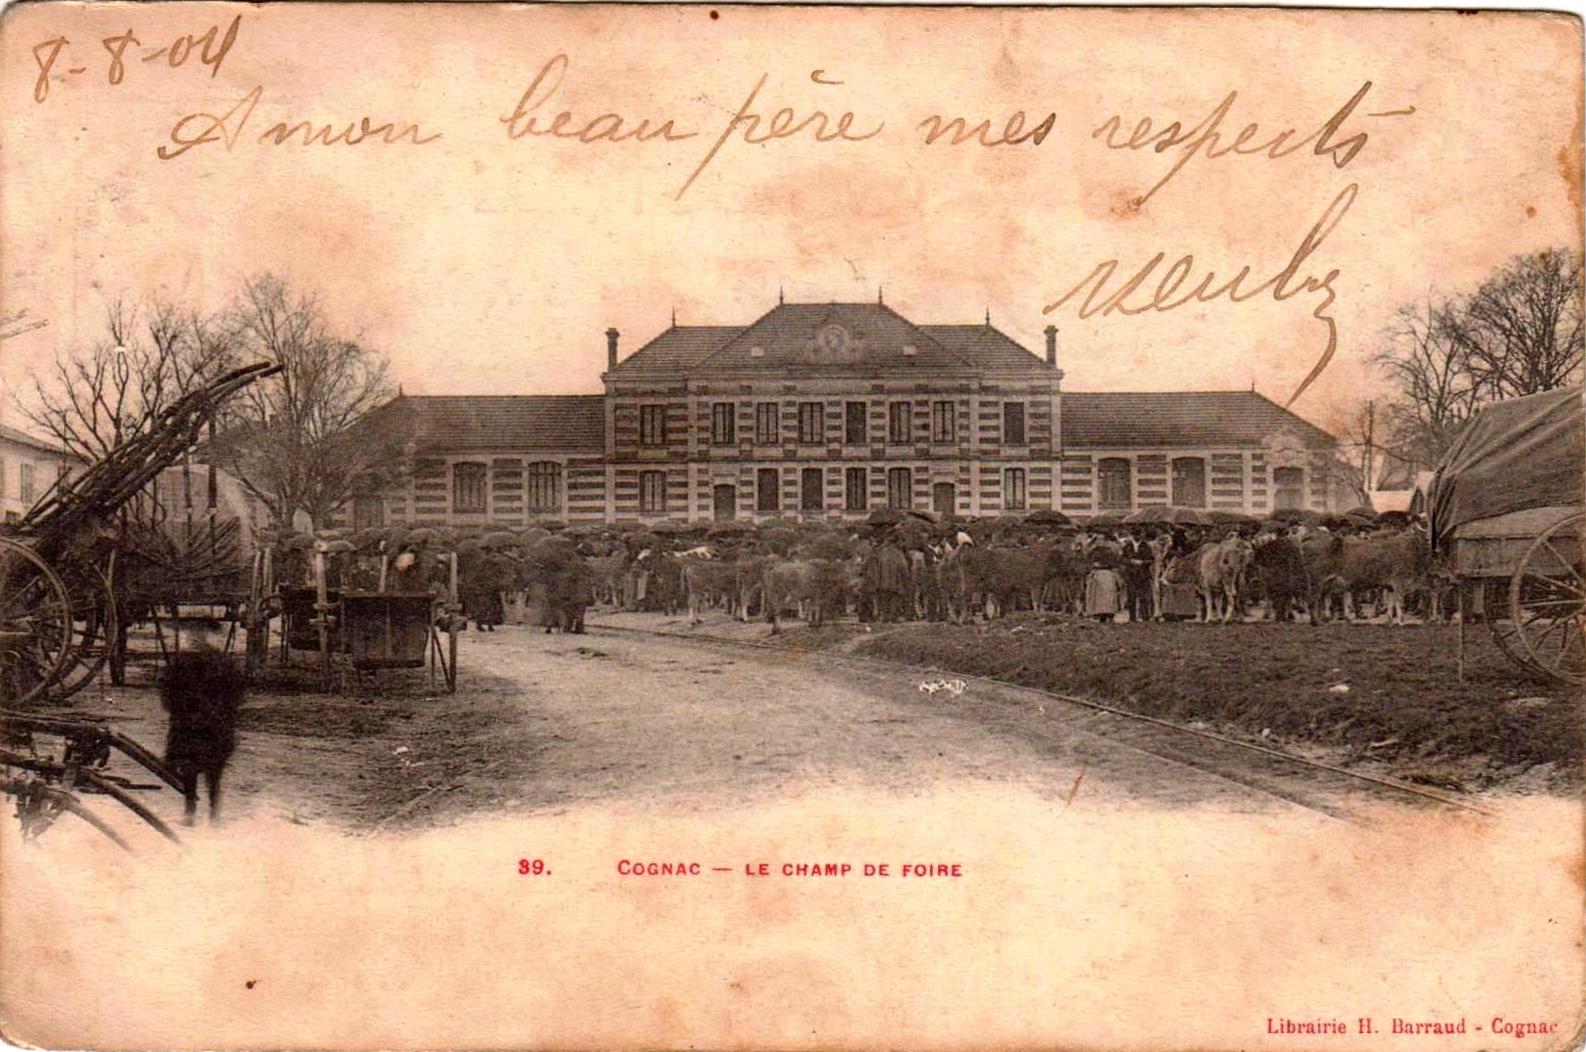 8-8-04
A mon beau père mes respects
39. COGNAC — LE CHAMP DE FOIRE
Librairie H. Barraud - Cognac